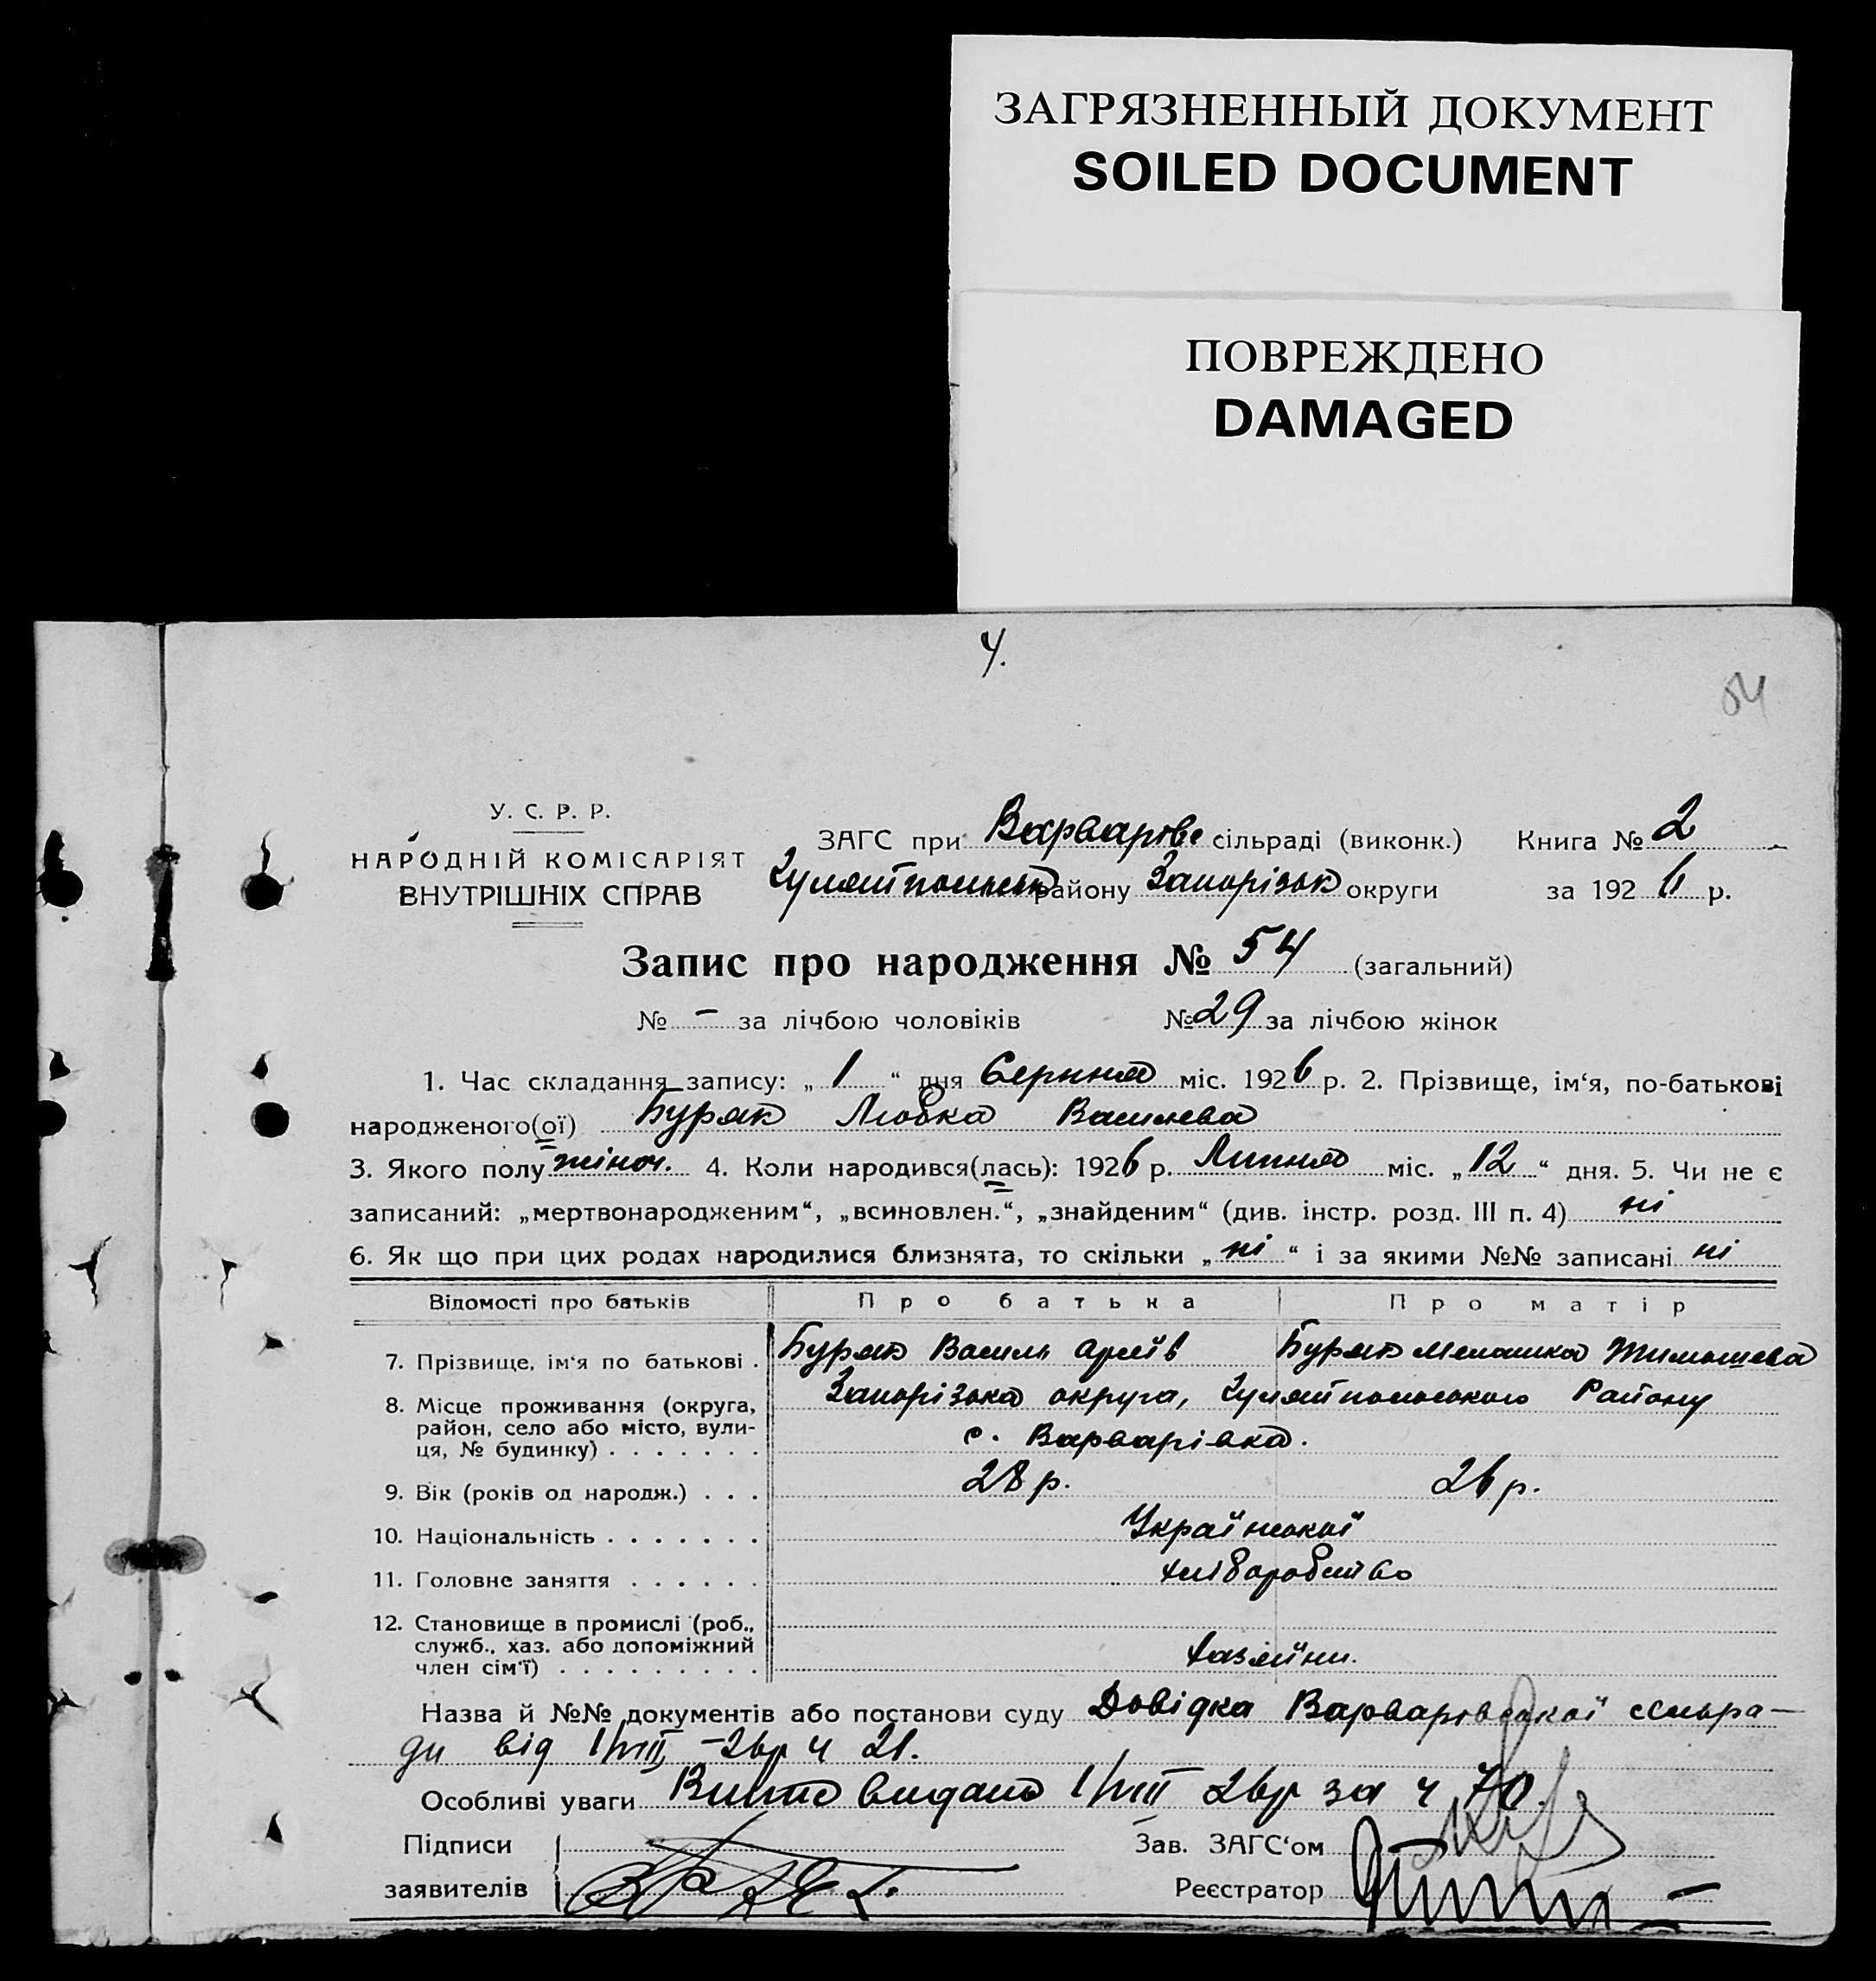 ЗАГРЯЗНЕННЫЙ ДОКУМЕНТ
SOILED DOCUMENT
ПОВРЕЖДЕНО
DAMAGED
4.
54
У. С. Р. Р.
НАРОДНІЙ КОМІСАРІЯТ
ВНУТРІШНІХ СПРАВ
ЗАГС при Варварове сільраді (виконк.) Книга № 2
Гуляйпольськ району Запорізьк округи за 1926 р.
Запис про народження № 54 (загальний)
№ - за лічбою чоловіків № 29 за лічбою жінок
1. Час складання запису: „ 1 “ дня Серпня міс. 1926 р. 2. Прізвище, ім‘я, по-батькові
народженого(ої) Буряк Любка Василева
3. Якого полу жіноч. 4. Коли народився(лась): 1926 р. Липня міс. „ 12 “ дня. 5. Чи не є
записаний: „мертвонародженим“, „всиновлен.“, „знайденим“ (див. інстр. розд. III п. 4) ні
6. Як що при цих родах народилися близнята, то скільки „ ні “ і за якими №№ записані ні
Відомості про батьків Про батька Про матір
7. Прізвище, ім‘я по батькові . Буряк Василь Буряк Мелашка Тимошева
8. Місце проживання (округа, Запорізька округа, Гуляйпольского Району
район, село або місто, вули-
ця, № будинку) . . . . . . . с. Варварівка.
9. Вік (років од народж.) . . . 28 р. 26 р.
10. Національність . . . . . . . Української
11. Головне заняття . . . . . . хліборобство
12. Становище в промислі (роб.,
служб., хаз. або допоміжний
член сім‘ї) . . . . . . . . . хазяйни.
Назва й №№ документів або постанови суду Довідка Варваровської сільра-
ди від 1/VIII - 26р ч 21.
Особливі уваги Витяг видано 1/VIII 26р за ч 70.
Підписи Зав. ЗАГС‘ом
заявителів Реєстратор